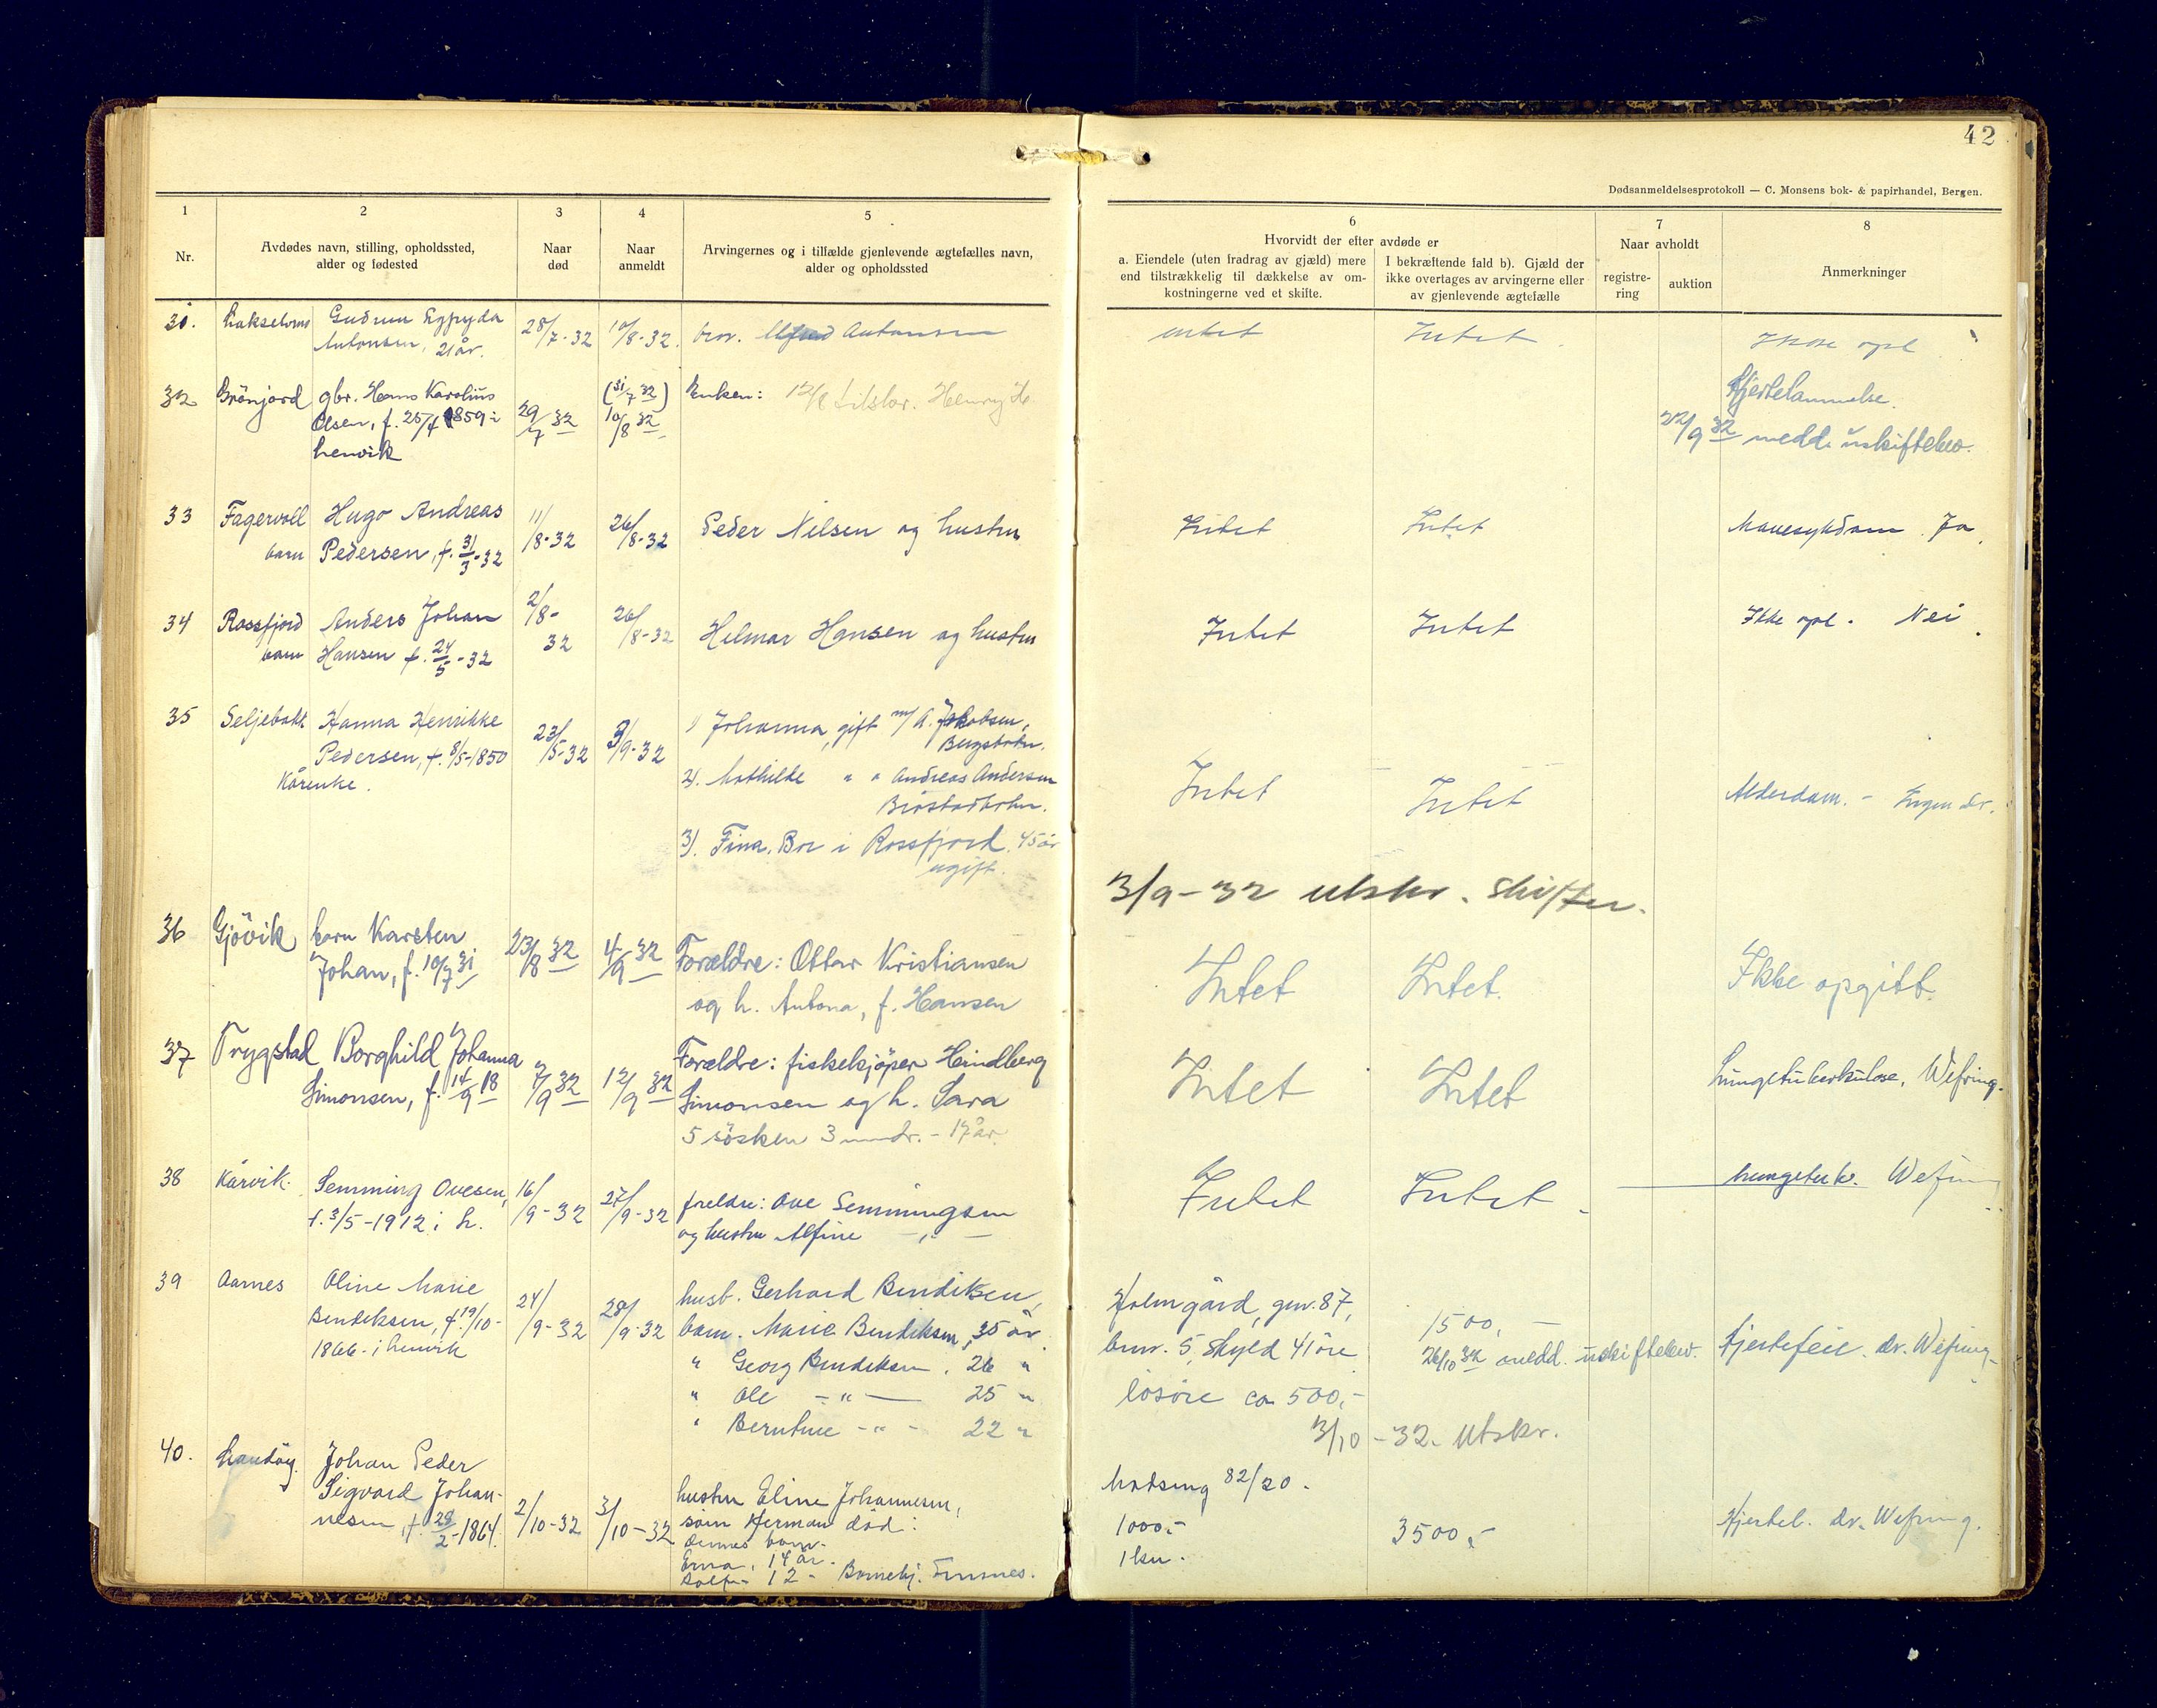 42
Dødsanmeldelsesprotokoll — C. Monsens bok- & papirhandel, Bergen.
1
Nr.
2
Avdødes navn, stilling, opholdssted,
alder og fødested
3
Naar
død
4
Naar
anmeldt
5
Arvingernes og i tilfælde gjenlevende ægtefælles navn,
alder og opholdssted
6
Hvorvidt der efter avdøde er
a. Eiendele (uten fradrag av gjæld) mere
end tilstrækkelig til dækkelse av om-
kostningerne ved et skifte.
I bekræftende fald b). Gjæld der
ikke overtages av arvingerne eller
av gjenlevende ægtefælle
7
Naar avholdt
registre-
ring
auktion
8
Anmerkninger
31. Gudrun
Antonsen, 21 år. 28/7-32 10/8-32. Antonsen Intet Intet Ikke opl
32 Grönjord gbr. Hans Karolius
Olsen, f. 25/4 1859 i
Lenvik 29/7 32 (31/7 32)
10/8 32 Enken: Henry H.
Hjertelammelse.
22/9 32 medd. uskiftebev.
33 Fagervoll Hugo Andreas
barn Pedersen, f. 31/3-32 11/8-32 26/8-32 Peder Nilsen og hustru Intet Intet Mavesykdom. Ja
34 Rossfjord Anders Johan
barn Hansen f. 24/5-32 2/8-32 26/8-32 Hilmar Hansen og hustru Intet Intet Ikke opl. Nei
35 Hanna Henrikke
Pedersen, f. 8/5-1850
Kårenke. 23/5-32 3/9-32 1) Johanna, gift m/ A. Jakobsen,
2). Mathilde " " Andreas Andersen
3). Fina. Bor i Rossfjord. 45 år
ugift.
Intet Intet Alderdom. - Ingen dr.
3/9-32 utskr. skifter.
36 Gjövik barn Karsten
Johan, f. 10/7 31 23/8 32 4/9 32 Forældre: Ottar Kristiansen
og h. Antona, f. Hansen Intet Intet. Ikke opgitt.
37 Trygstad Borghild Johanna
Simonsen, f. 14/9 18 7/9 32 12/9 32 Forældre: fiskekjöper Heindberg
Simonsen og h. Sara
5 sösken 3 mndr. - 17 år. Intet Intet Lungetuberkulose, Wefring.
38 Kårvik. Semming Ovesen,
f. 3/5-1912 i L. 16/9-32 27/9-32 foreldre: Ove Semmingsen
og hustru Alfine Intet Intet Lungetuberk. Wefring
39 Aarnes Oline Marie
Bendiksen, f. 19/10-
1866- i Lenvik 24/9-32 28/9-32 husb. Gerhard Bendiksen,
barn. Marie Bendiksen, 35 år
" Georg Bendiksen. 26 "
" Ole - " - 25 "
" Berntine - " - 22 "
Holmgård, gnr. 87,
bnr. 5, skyld 41 öre
lösöre ca 500,-
1500,-
26/10 32 medd. uskiftebev. Hjertefeil. dr. Wefring
3/10-32. Utskr.
40. Johan Peder
Sigvard Johan-
nesen, f. 28/2-1864. 2/10-32 3/10-32 hustru Eline Johannesen,
sönn Herman död:
dennes barn.
Erna, 14 år.
Rolf - 12 - Finsnes.
82/20.
1000,-
1 ku.
3500,-
Hjertel. dr. Wefring.